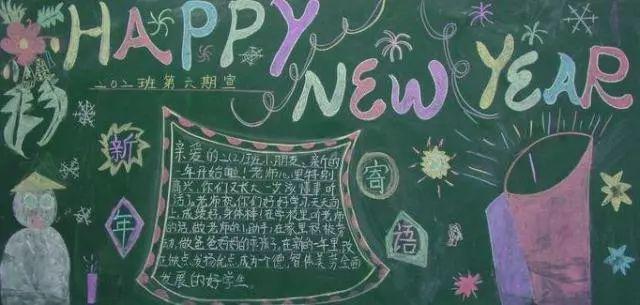 HAPPY
NEW YEAR
202班第六期宣
新
年
寄
语
亲爱的202班小朋友、新的
一年开始啦!老师心里特别
高兴,你们又长大一岁该懂事听
话了。老师祝你们好好学习天天向
上,成绩好,身体棒!在学校里听老师
的话,做老师的小助手;在家里积极劳
动,做爸爸妈妈的乖孩子,在新的一年里改
正缺点,发扬优点,成为一个德、智体美劳全面
发展的好学生。